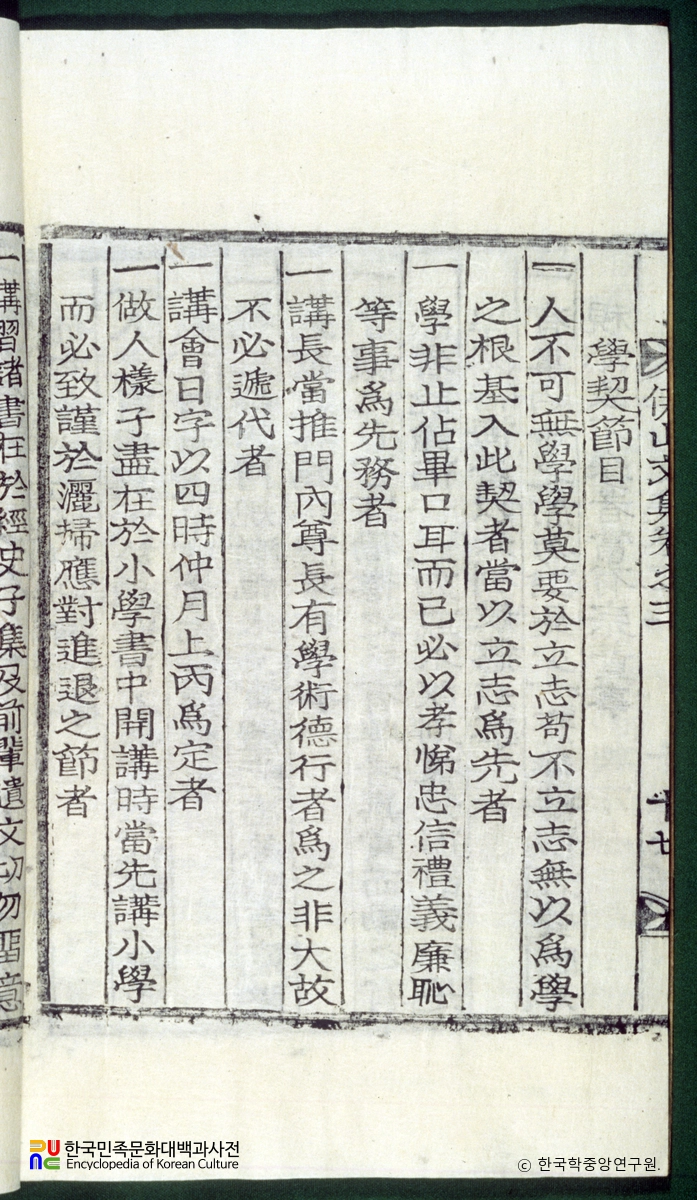 山文集卷之三
十七
學契節目
一人不可無學學莫要於立志苟不立志無以爲學
之根基入此契者當以立志爲先者
一學非止佔畢口耳而已必以孝悌忠信禮義廉恥
等事爲先務者
一講長當推門內尊長有學術德行者爲之非大故
不必遞代者
一講會日字以四時仲月上丙爲定者
一做人樣子盡在於小學書中開講時當先講小學
而必致謹於灑掃應對進退之節者
一講習諸書在於經史子集及前輩遺文切勿留意
한국민족문화대백과사전
Encyclopedia of Korean Culture
© 한국학중앙연구원.